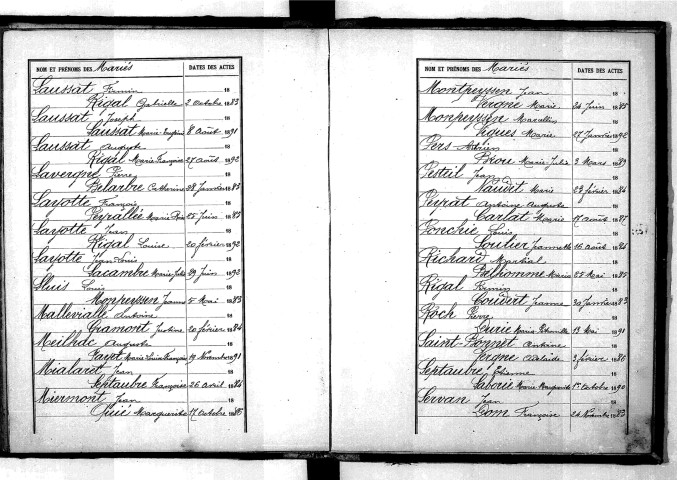 NOM ET PRÉNOMS DES Mariés DATES DES ACTES
Laussat Firmin 18
Rigal Gabrielle 2 Octobre 1883
Laussat Joseph 18
Laussat Marie 8 Août 1891
Laussat Auguste 18
Rigal Marie Françoise 27 août 1892
Lavergne Pierre 18
Delarbre Catherine 28 Janvier 1883
Layotte François 18
Peyrallée Marie 25 Juin 1883
Layotte Jean 18
Rigal Louise 20 février 1892
Layotte Jean Louis 18
Lacambre Marie Julie 29 Juin 1892
Lluis Louis 18
Monpeyssen Jeanne 5 Mai 1883
Mallevialle Antoine 18
Gramont Justine 20 février 1884
Meilhac Auguste 18
Payot Marie Louise Françoise 19 Novembre 1891
Mialaret Jean 18
Septaubre Françoise 26 avril 1884
Miermont Jean 18
Marguerite 17 Octobre 1885
NOM ET PRÉNOMS DES Mariés DATES DES ACTES
Montpeyssen Jean 18
Vergne Marie 24 Juin 1885
Monpeyssen Marcellin 18
Vigues Marie 27 Janvier 1892
Pers Adrien 18
Biou Marie Julie 3 Mars 1889
Pesteil Jean 18
Naudit Marie 23 février 1884
Peyrat Antoine Auguste 18
Carlat Marie 17 août 1887
Ponchie Louis 18
Soulier Jeannette 16 août 1884
Richard Martial 18
Malhomme Maria 25 Mai 1885
Rigal Firmin 18
Couvert Jeanne 20 Janvier 1883
Roch Pierre 18
Marie 13 Mai 1891
Saint-Bonnet Antoine 18
Vergne Adelaide 3 février 1886
Septaubre Etienne 18
Laborie Marie Marguerite 1er Octobre 1890
Servan Jean 18
Dom Françoise 24 Novembre 1883